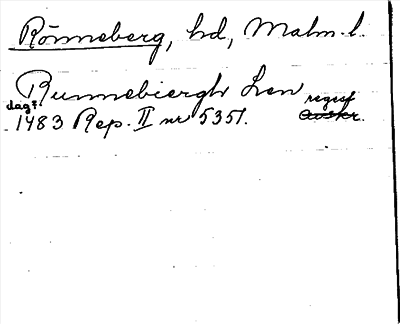 Rönneberg, hd, Malm. l.
Runnebiergh Len regest
dag? 1483 Rep. II nr 5351. Avskr.